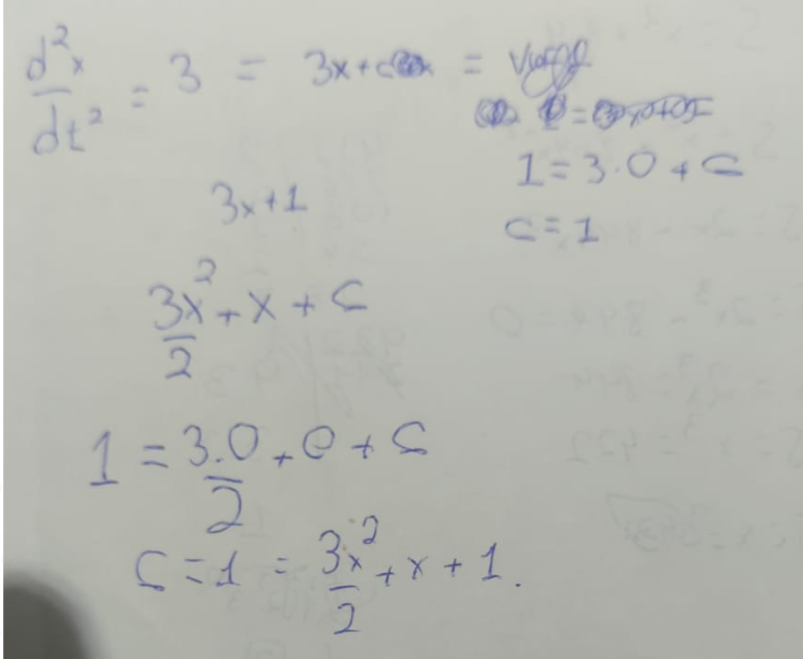 d²x/dt² = 3 = 3x+c =
1 = 3.0 + c
c = 1
3x+1
3x²/2 + x + c
1 = 3.0/2 + 0 + c
c = 1 = 3x²/2 + x + 1.